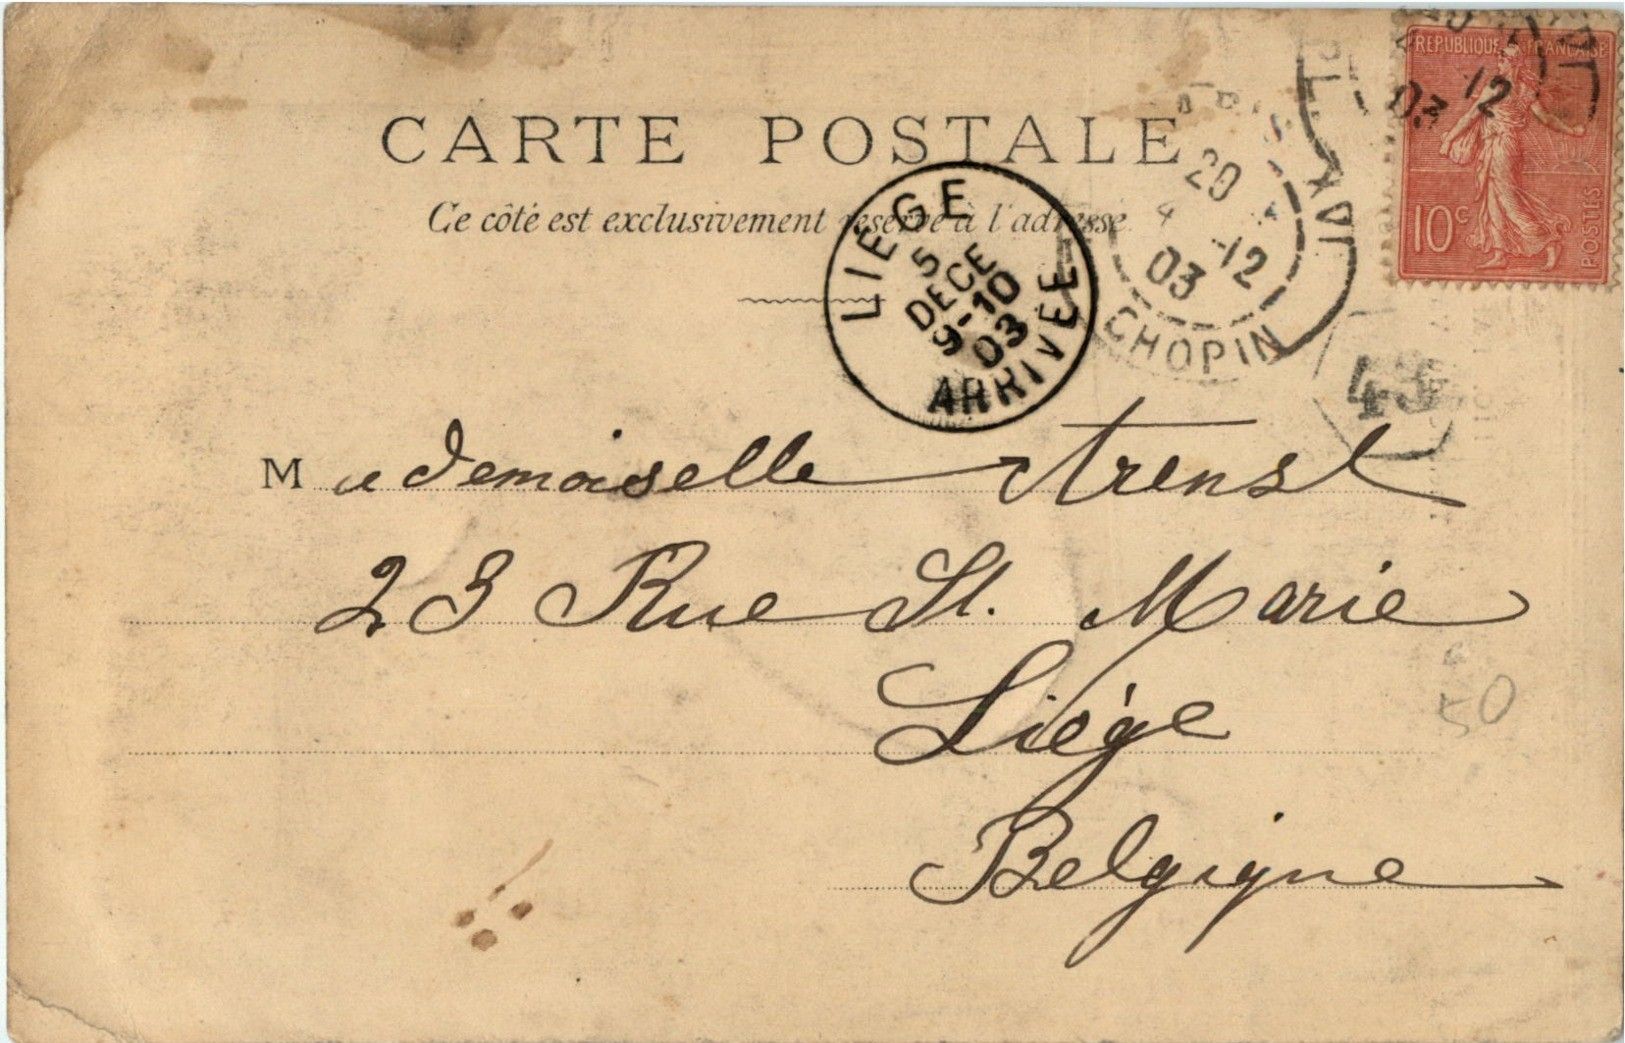 CARTE POSTALE
Ce côté est exclusivement réservé à l'adresse
RÉPUBLIQUE FRANÇAISE
10c
POSTES
03 12
LIÈGE
5
DECE
9-10
03
ARRIVEE
20
4 -12
03
CHOPIN
43
Mademoiselle
23 Rue St. Marie
Liège
Belgique
50